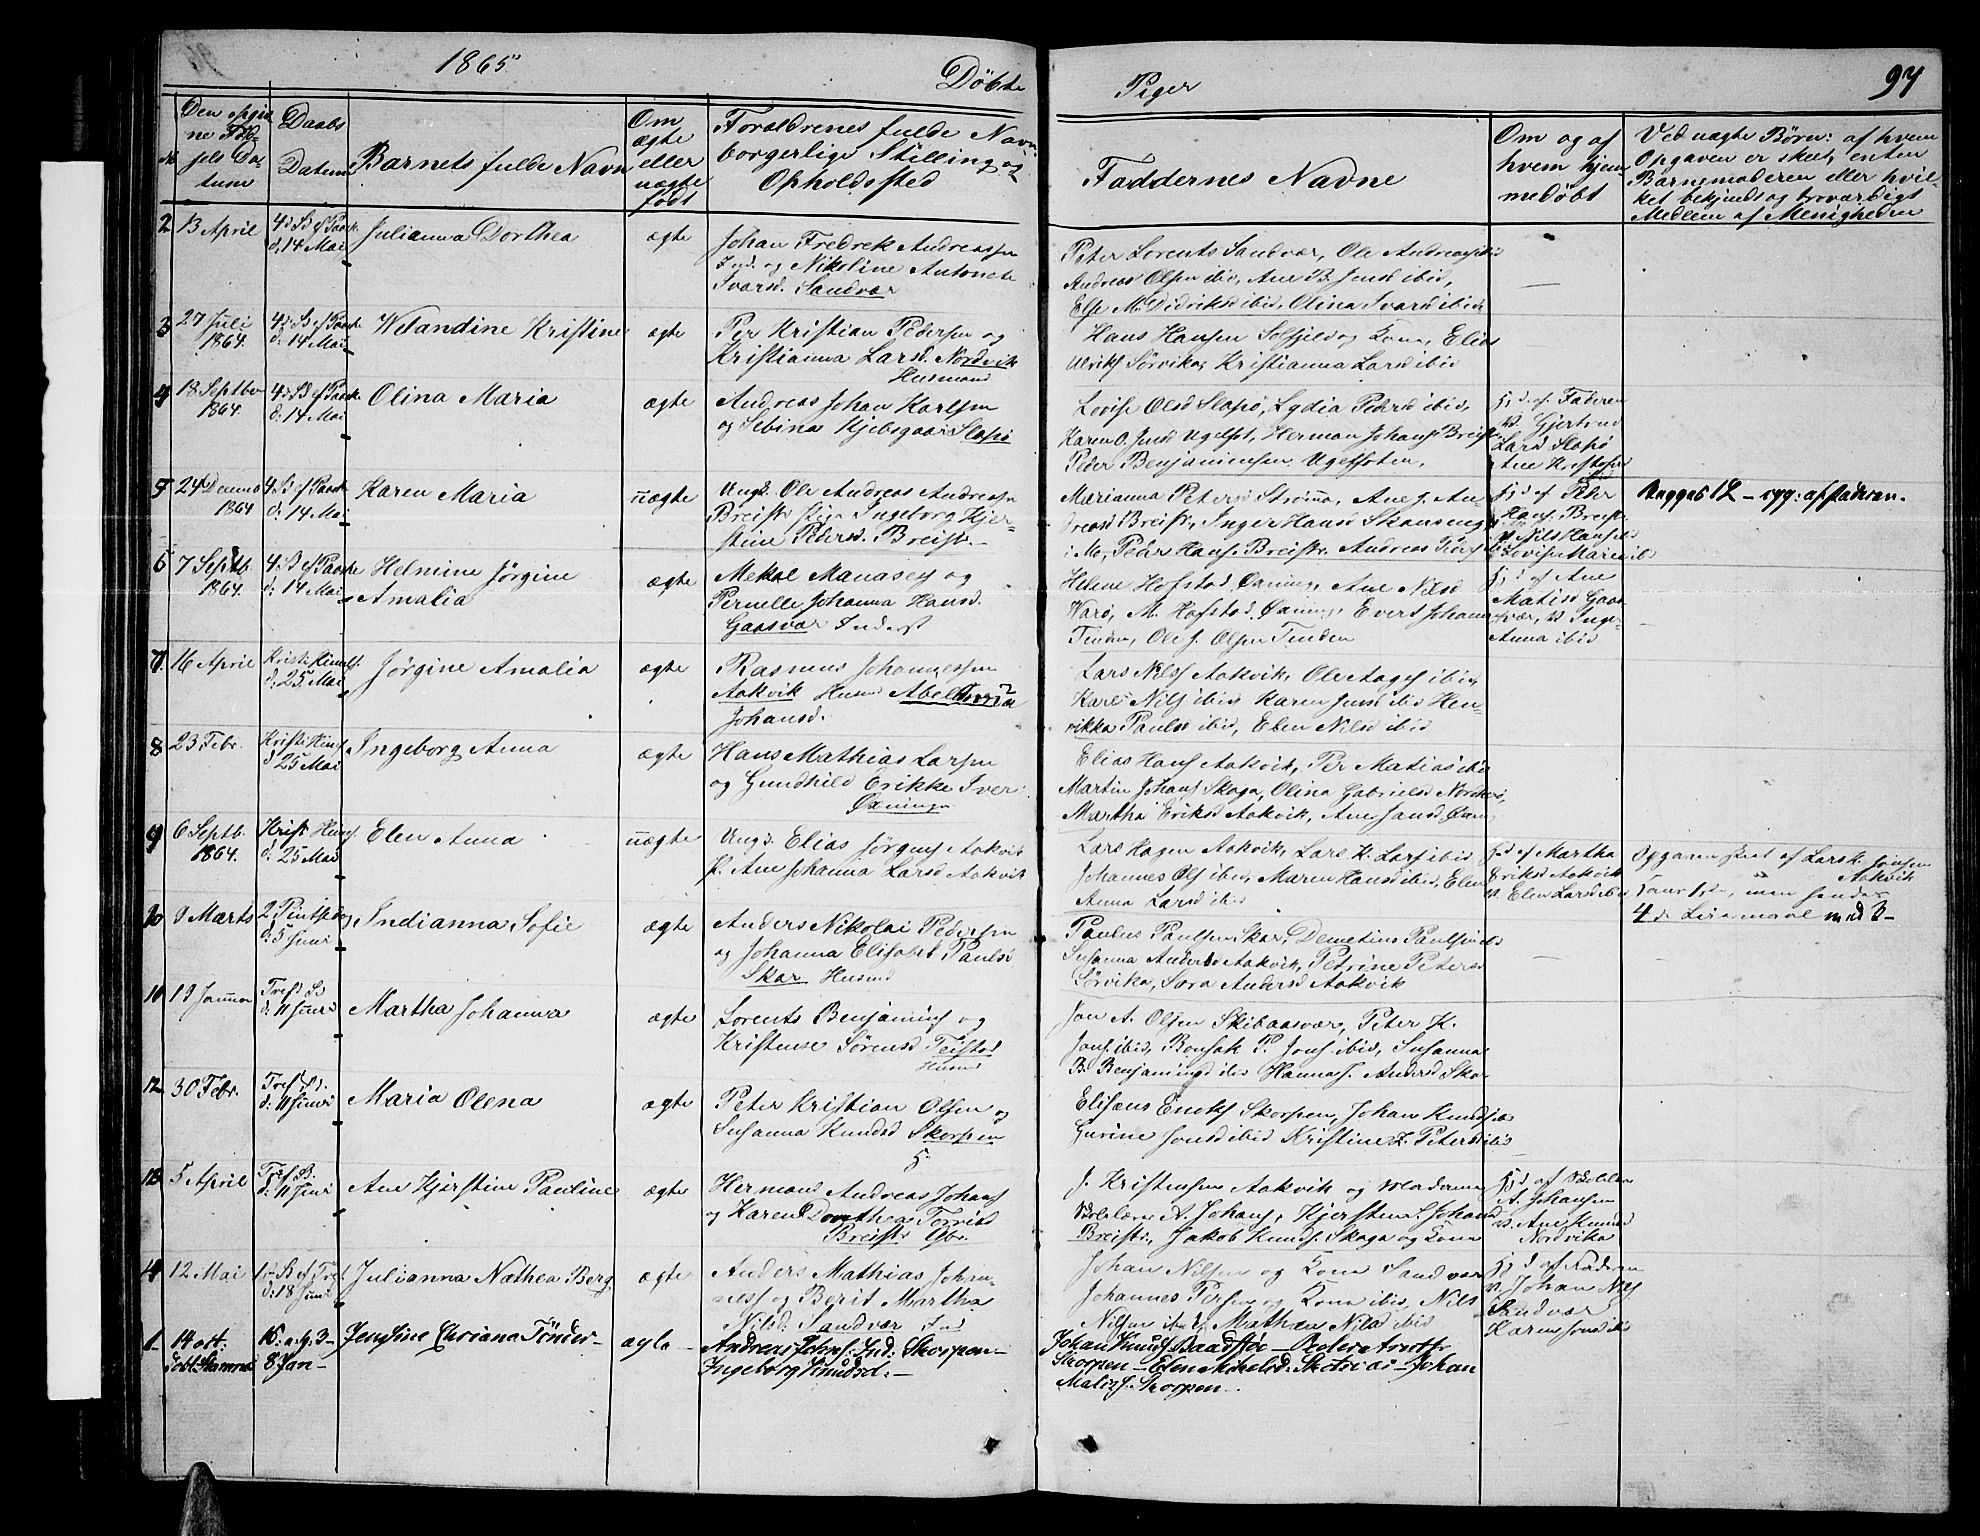 1865
Döbte Piger
97
No
Den opgivne Fødsels Datum
Daabs Datum
Barnets fulde Navn
Om ægte eller uægte født
Forældrenes fulde Navn borgerlige Stilling og Opholdssted
Faddernes Navne
Om og af hvem hjemmedøbt
Ved uægte Børn: af hvem Opgaven er skeet, enten Barnemoderen eller hvilket bekjendt og troværdigt Medlem af Menigheden
2 13 April 4d S ef Paask d. 14 Mai Julianna Dorthea ægte
Johan Fredrek Andreassen
Ind. og Nikoline Antonete
Ivarsd. Sandvær
Peter Lorents Sandvær, Ole Andreas ibid
Andreas Olsen ibid, Ane B. Jensd ibid,
Else M. Didriksd ibid, Olina Ivarsd ibid
3 27 Juli 1864. 4d S ef Paask d. 14 Mai Wetandine Kristine ægte
Per Kristian Pedersen og
Kristianna Larsd. Nordvik
Husmand
Hans Hansen Solfjeld og Kona, Elias
Ulriks Sörvika, Kristianna Larsd ibid
4 18 Septbr 1864. 4d S ef Paask d. 14 Mai Olina Maria ægte
Andreas Johan Karlsen
og Sebina Kjelsgaar Slapö
Lovise Olsd Slapö, Lydia Pedersd ibid,
Karen O. Jensd Ugelst, Herman Johans Breistr
Peder Benjaminsen Ugelsloten,
Hjd. af Faderen
v. Gjertrud
Larsd Slapö
Ane
5 24 Decemb 1864 4. S ef Paask d. 14 Mai Karen Maria uægte
Ungk. Ole Andreas Andreasen
Breistr Pige Ingeborg Kjer-
stine Pedersd. Breistr.
Marianna Petersd Strömm, Ane J. An-
dreasd Breistr, Inger Hansd Skauseng
i M, Peder Hans. Breistr. Andreas
Hjd af Pehr
Hans. Breistr
v. Nils Hansen
Lovise Maria ib
6 7 Septb. 1864. 4. S ef Paaske d. 14 Mai Helmine Jörgine
Amalia ægte
Mekal Manases og
Pernelle Johanna Hansd.
Gaasvær Inderst
Helene Hofstad Öxning, Ane Nilsd
Warö, M. Hofstad Öxning, Evert Johan
Tinden, Ole J. Olsen Tinden
Hjd af Ane
Matisd Gaas-
vær, v Inge-
Anna ibid
7. 16 April Kristi Himelf. d. 25. Mai Jörgine Amalia ægte
Rasmus Johannessen
Aakvik Husmd Abel Maria
Johansd.
Lars Nils Aakvik, Ole Aages ibid,
Karl Nils ibid Karen Jensd ibid Hen-
rikka Paulsd ibid, Elen Nilsd ibid
8 23 Febr. Kristi Himf. d 25 Mai Ingeborg Anna ægte
Hans Mathias Larsen
og Gundhild Erikke Iver
Öxningen
Elias Hans Aakvik, Per Matias ibid
Martin Johans Skaga, Olina Gabrielsd Nordvik,
Martha Eriksd Aakvik, Ane Jansd Öxn
9 6 Septb. 1864. Krist Himf. d. 25 Mai Elen Anna uægte
Ungk. Elias Jörgens Aakvik
P. Ane Johanna Larsd Aakvik
Lars Hagen Aakvik, Lars K. Lars ibid
Johannes Ols ibid, Maren Hansd ibid, Elen
Anna Larsd ibid
Hjd af Martha
Eriksd Aakvik
v. Elen Larsd ibid
Opgaven skeet af Lars K. Jensen
Aakvik
10 9 Marts 2 Pintsedag d. 5 Juni Indianna Sofie ægte
Anders Nikolai Pedersen
og Johanna Elisabet Paulsd
Skar Husmd
Paulus Paulsen Skar, Demetius Paulsen ib
Susanna Andersd Aakvik, Petrine Petersd
Sörvika, Sara Andersd Aakvik
11 19 Januar Tref. Sd d. 11 Juni Martha Johanna ægte
Lorents Benjamins og
Kristense Sörensd Teistad
Husmd
Jon A. Olsen Skibaasvær, Peter K.
Jons. ibid, Ronsak P. Jons ibid, Susanna
B. Benjaminsd ibid Hanna J. Andersd Skar
12 30 Febr. Tref S. d. 11 Juni Maria Olena ægte
Peter Kristian Olsen og
Susanna Knudsd Skorpen
5
Eliseus Enoks Skorpen, Johan Knuds ib
Gurine Jonsd ibid Kristine Z. Petersd ibid
13 5 April Tref S. d. 11 Juni Ane Kjerstine Pauline ægte
Hermand Andreas Johans
og Karen Dorthea Torrisd
Breistr Gbr.
J. Kristensen Aakvik og Moderen
Skolelærer A. Johans, Kjersten S. Johansd
Breistr, Jakob Knuds. Skaga og Kona
Hjd af Skolelær
A. Johansen
v. Ane Knudsd
Nordvika
14 12 Mai 1. S. ef Tref. d. 18 Juni Julianna Nathea Berg ægte
Anders Mathias Johan-
ness og Berit Martha
Nilsd. Sandvær Ind
Johan Nilsen og Kona Sandvær
Johannes Persen og Kona ibid, Nils
Nilsen ibid, Mathea Nilsd ibid
Hjd af Faderen
v. Johan Nils
Sandvær
Karen Jonsd ibid
1 14 oct. döbt Stamnes 15. a. g. 3 – 8 Jan – Jensine Chriana Tönder – ægte –
Andreas Johns. Ind: Skorpen –
Ingeborg Knudsd. –
Johan Knuds Baadstö – Peder Arntsr
Skorpen – Elen Mikelsd. Skotsvær – Johan
Matis. Skorpen –